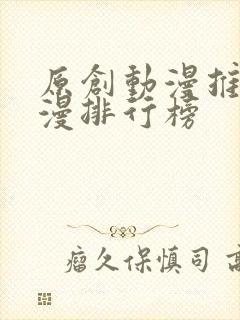 原創動漫推
漫排行榜
瘤久保慎司 高